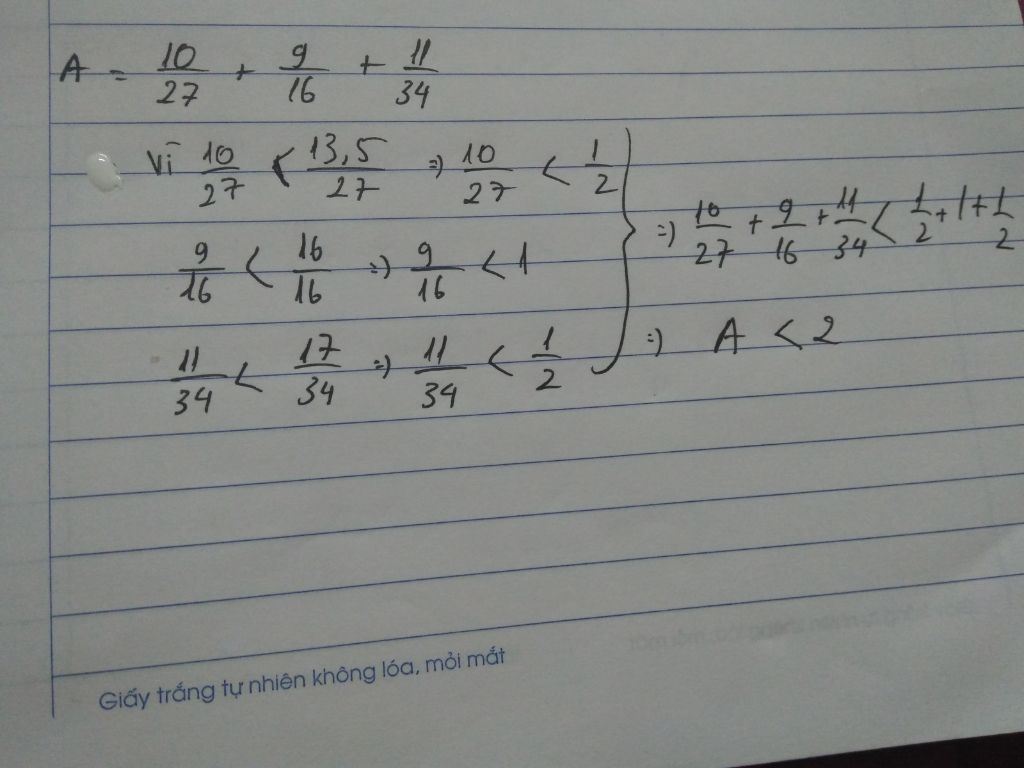 A = 10/27 + 9/16 + 11/34
Vì 10/27 < 13,5/27 => 10/27 < 1/2
9/16 < 16/16 => 9/16 < 1
11/34 < 17/34 => 11/34 < 1/2
=> 10/27 + 9/16 + 11/34 < 1/2 + 1 + 1/2
=> A < 2
Giấy trắng tự nhiên không lóa, mỏi mắt